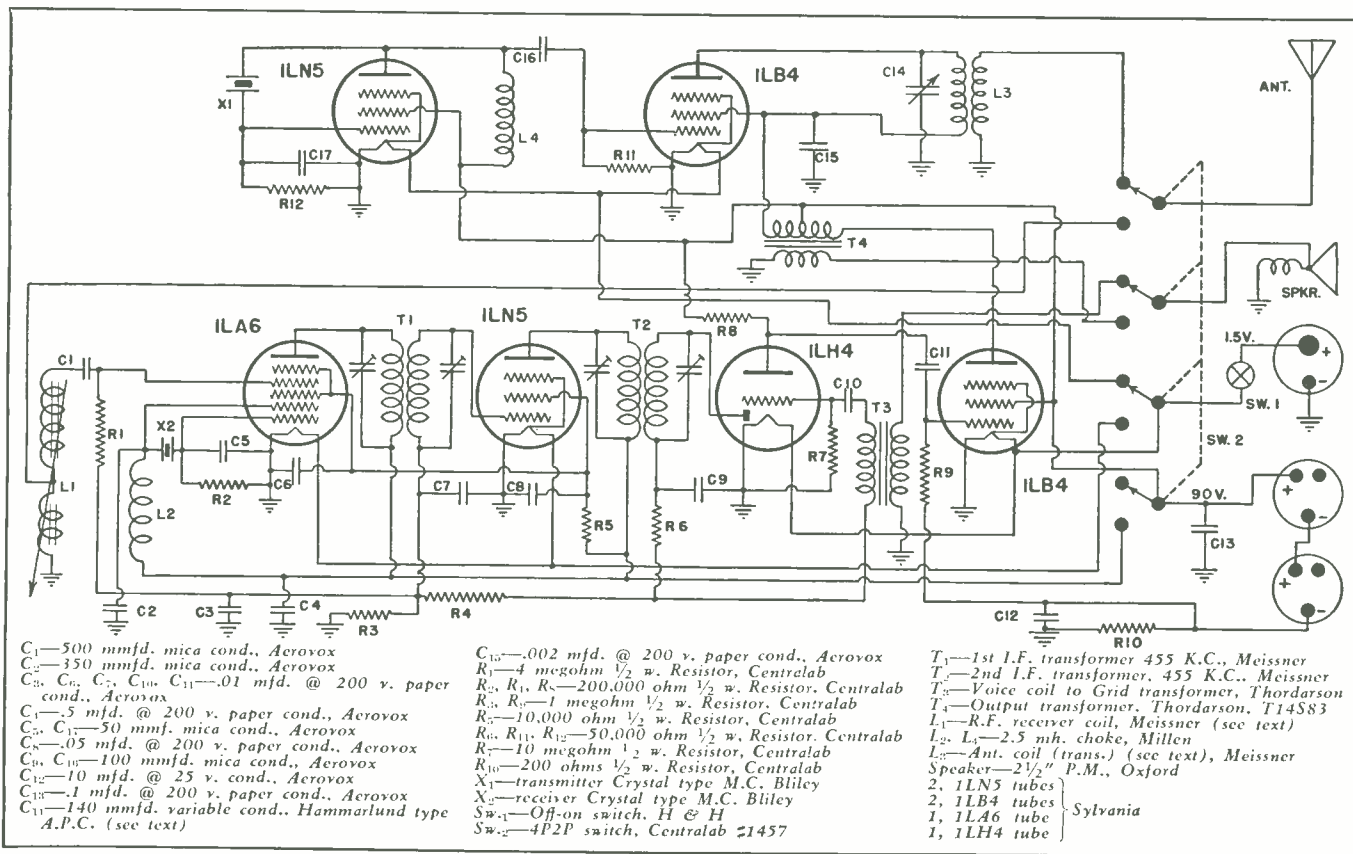 C16
1LN5
X1
L4
C17
R12
1LB4
R11
C15
C14
L3
ANT.
T4
SPKR.
1LA6
C1
T1
1LN5
T2
R8
1LH4
C11
1.5V.
+
-
SW.1
SW.2
R1
X2
C5
R2
C6
L1
L2
C7
C8
R5
R6
C9
C10
R7
T3
R9
1LB4
90V.
C13
+
-
+
-
C2
C3
C4
R3
R4
C12
R10
C1—500 mmfd. mica cond., Aerovox
C2—350 mmfd. mica cond., Aerovox
C3, C6, C7, C10, C11—.01 mfd. @ 200 v. paper
cond., Aerovox
C4—.5 mfd. @ 200 v. paper cond., Aerovox
C5, C17—50 mmf. mica cond., Aerovox
C8—.05 mfd. @ 200 v. paper cond., Aerovox
C9, C16—100 mmfd. mica cond., Aerovox
C12—10 mfd. @ 25 v. cond., Aerovox
C13—.1 mfd. @ 200 v. paper cond., Aerovox
C14—140 mmfd. variable cond., Hammarlund type
A.P.C. (see text)
C15—.002 mfd. @ 200 v. paper cond., Aerovox
R1—4 megohm 1/2 w. Resistor, Centralab
R2, R4, R8—200,000 ohm 1/2 w. Resistor, Centralab
R3, R9—1 megohm 1/2 w. Resistor, Centralab
R5—10,000 ohm 1/2 w. Resistor, Centralab
R6, R11, R12—50,000 ohm 1/2 w. Resistor, Centralab
R7—10 megohm 1/2 w. Resistor, Centralab
R10—200 ohms 1/2 w. Resistor, Centralab
X1—transmitter Crystal type M.C. Bliley
X2—receiver Crystal type M.C. Bliley
Sw.1—Off-on switch, H & H
Sw.2—4P2P switch, Centralab #1457
T1—1st I.F. transformer 455 K.C., Meissner
T2—2nd I.F. transformer, 455 K.C., Meissner
T3—Voice coil to Grid transformer, Thordarson
T4—Output transformer, Thordarson, T14S83
L1—R.F. receiver coil, Meissner (see text)
L2, L4—2.5 mh. choke, Millen
L3—Ant. coil (trans.) (see text), Meissner
Speaker—2 1/2" P.M., Oxford
2, 1LN5 tubes
2, 1LB4 tubes
1, 1LA6 tube
1, 1LH4 tube
Sylvania